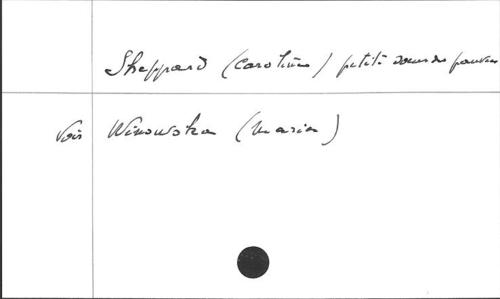 Sheppard (Caroline) petite soeur des pauvres
Voir Winowska (Maria)